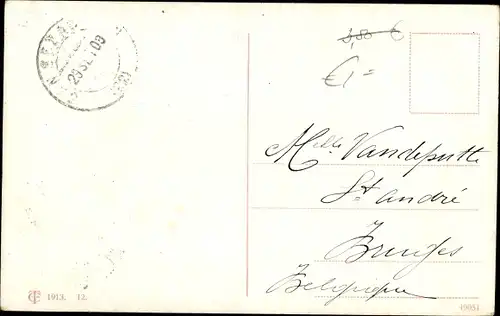 3,50 €
€1=
Mlle Vandeputte
St andré
Bruges
Belgique
1913. 12.
49051